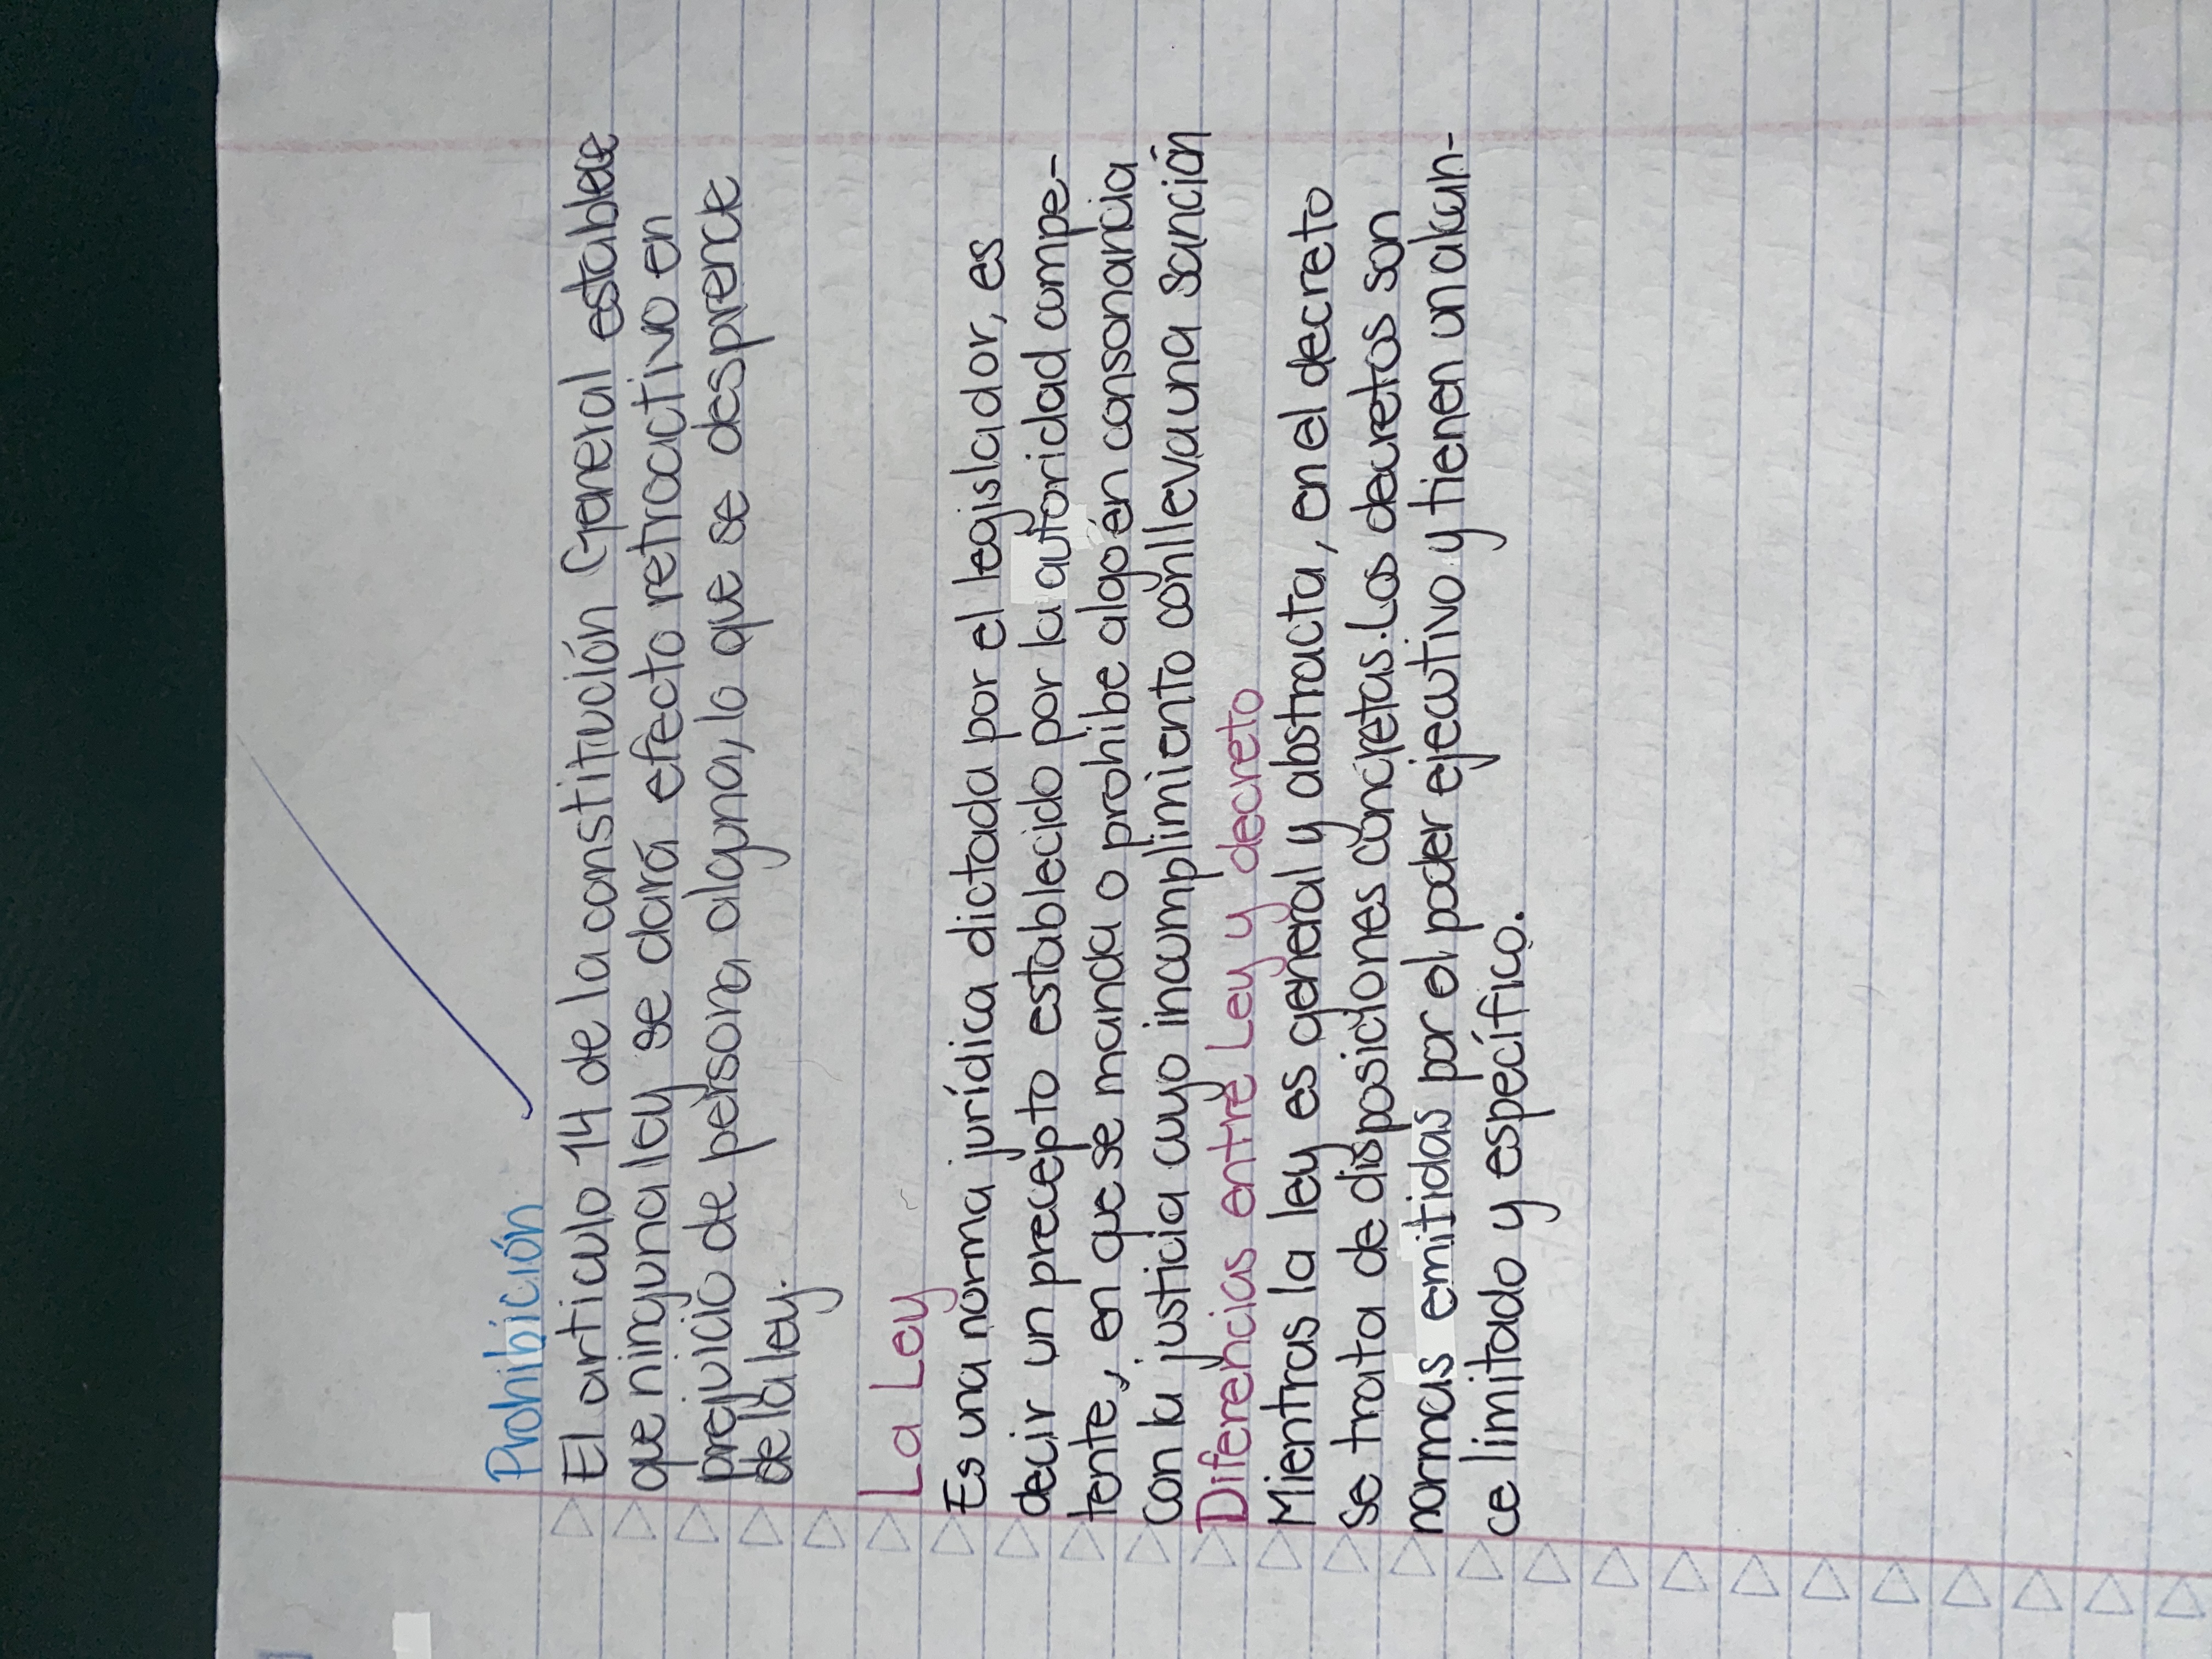 Prohibición
El articulo 14 de la constitución General establece
que ninguna ley se dará efecto retroactivo en
prejuicio de persona alguna, lo que se desprende
de la ley.
La Ley
Es una norma jurídica dictada por el legislador, es
decir un precepto establecido por la autoridad compe-
tente, en que se manda o prohibe algo en consonancia
con la justicia cuyo incumplimiento conlleva una sanción
Diferencias entre Ley y decreto
Mientras la ley es general y abstracta, en el decreto
se trata de disposiciones concretas. Los decretos son
normas emitidas por el poder ejecutivo y tienen un alcan-
ce limitado y específico.